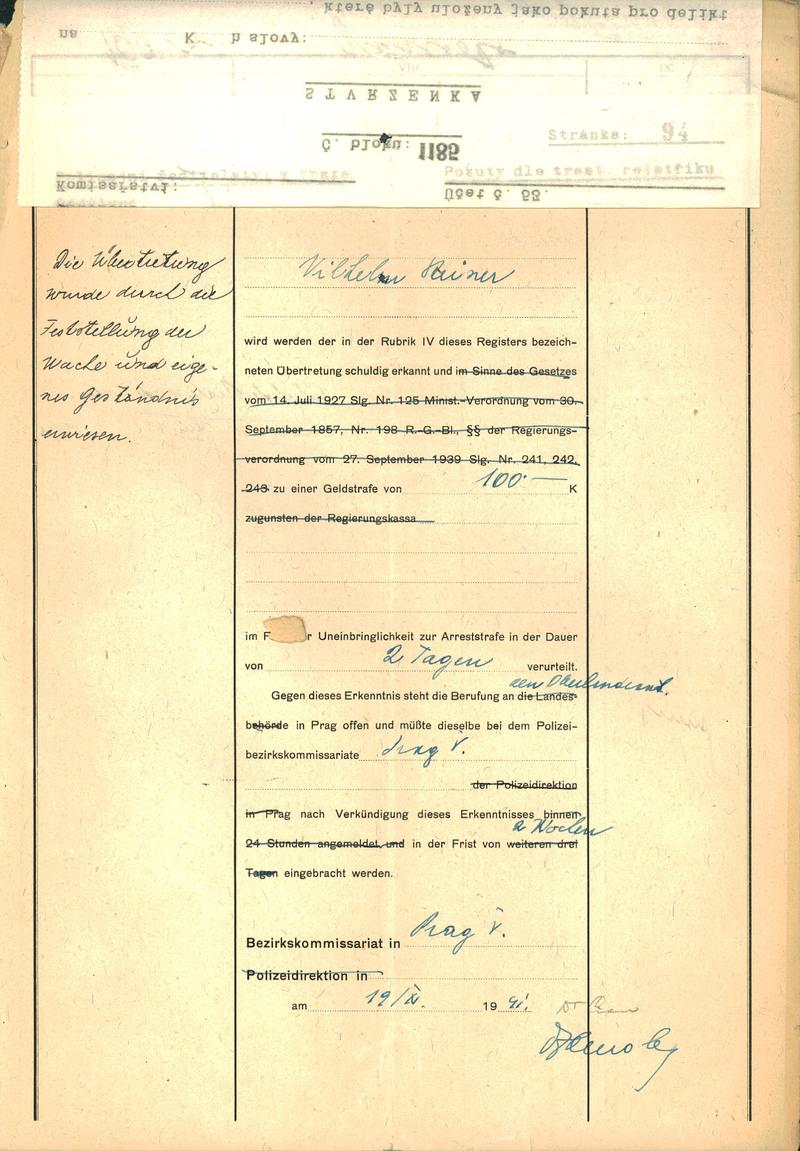 které byly uloženy jako pokuta pro delikt
na K h slovy:
VIII IX
STVRZENKA
Č. bloku: 1185
Stránka: 94
Pokuty dle trest. rejstříku
Komisařství:
Účet č. 55.
Die Übertretung
wurde durch die
Feststellung der
Wache und eige-
nes Geständnis
erwiesen.
Vilhelm Steiner
wird werden der in der Rubrik IV dieses Registers bezeich-
neten Übertretung schuldig erkannt und im Sinne des Gesetzes
vom 14. Juli 1927 Slg. Nr. 125 Minist.-Verordnung vom 30.
September 1857, Nr. 198 R.-G.-Bl., §§ der Regierungs-
verordnung vom 27. September 1939 Slg. Nr. 241, 242,
243 zu einer Geldstrafe von 100·— K
zugunsten der Regierungskassa
im F r Uneinbringlichkeit zur Arreststrafe in der Dauer
von 2 Tagen verurteilt.
Gegen dieses Erkenntnis steht die Berufung an die Landes-
behörde in Prag offen und müßte dieselbe bei dem Polizei-
bezirkskommissariate Prag V.
der Polizeidirektion
in Prag nach Verkündigung dieses Erkenntnisses binnen
2 Wochen
24 Stunden angemeldet und in der Frist von weiteren drei
Tagen eingebracht werden.
Bezirkskommissariat in Prag V.
Polizeidirektion in
am 19/XI. 19 41.
Dr